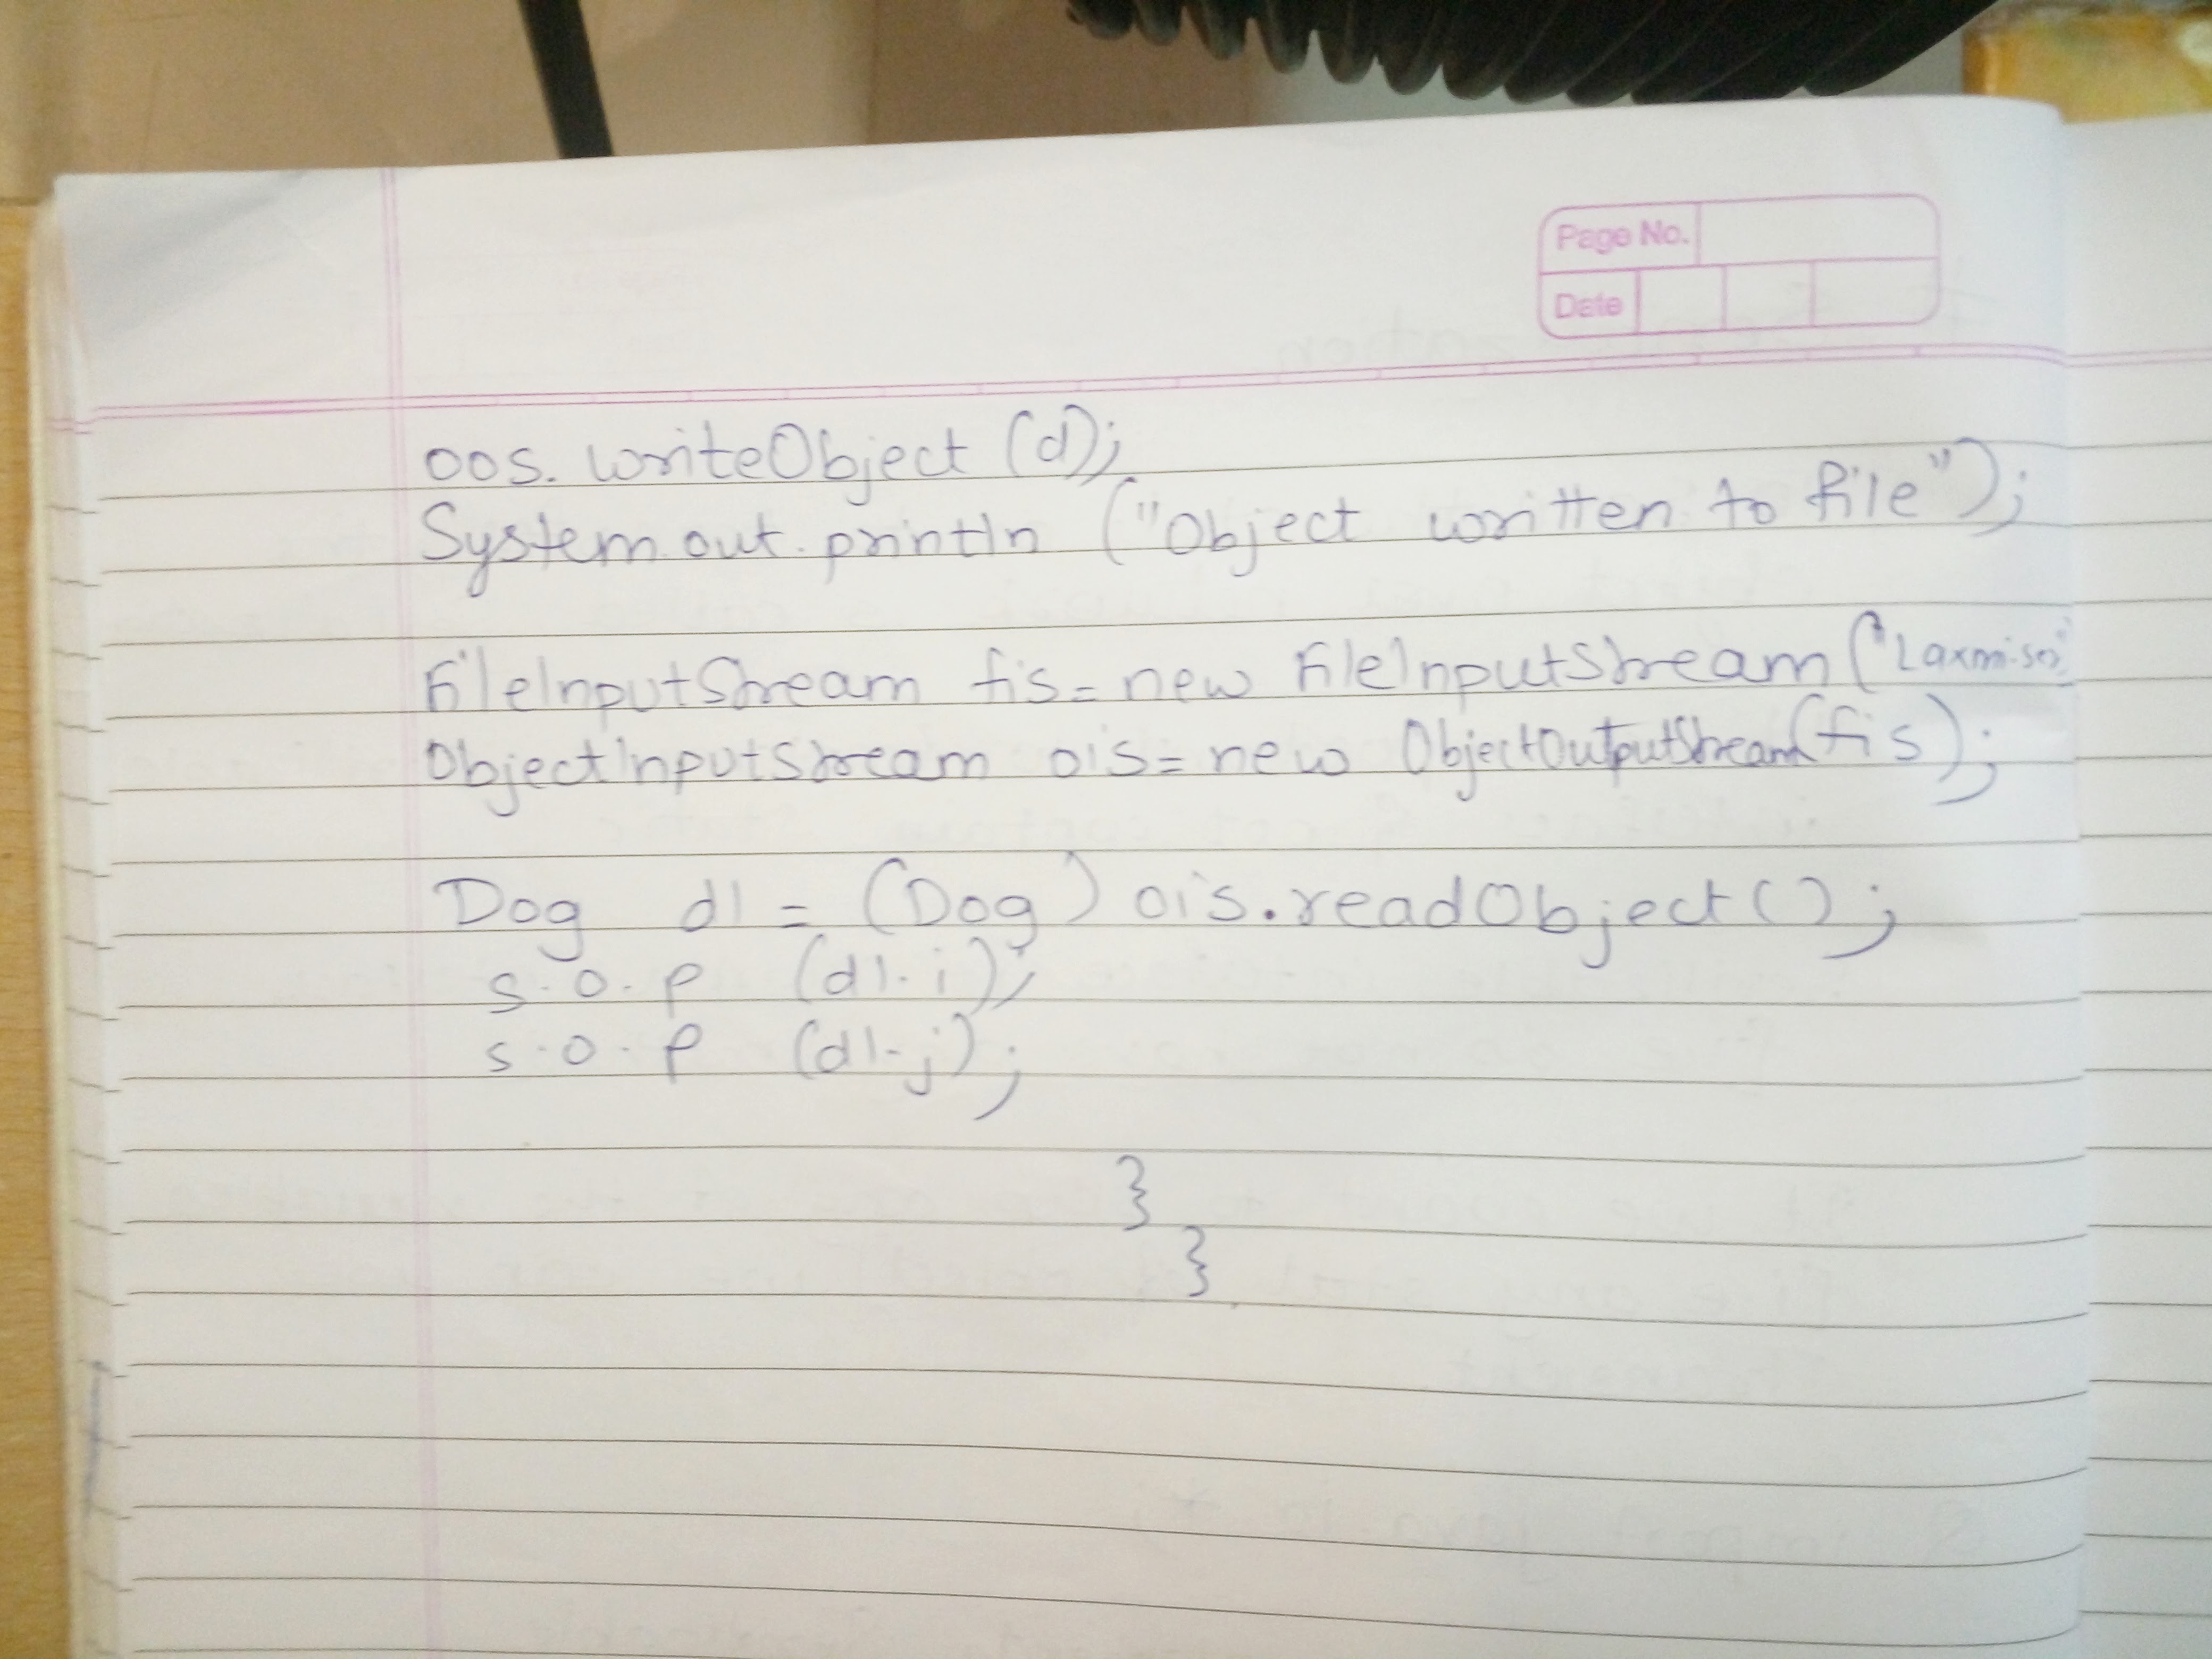 Page No.
Date
oos. writeObject (d);
System.out.println ("Object written to file");
FileInputStream fis = new FileInputStream ("Laxmi.ser"
ObjectInputStream ois = new ObjectOutputStream (fis);
Dog d1 = (Dog) ois.readObject();
s.o.p (d1.i);
s.o.p (d1.j);
}
}